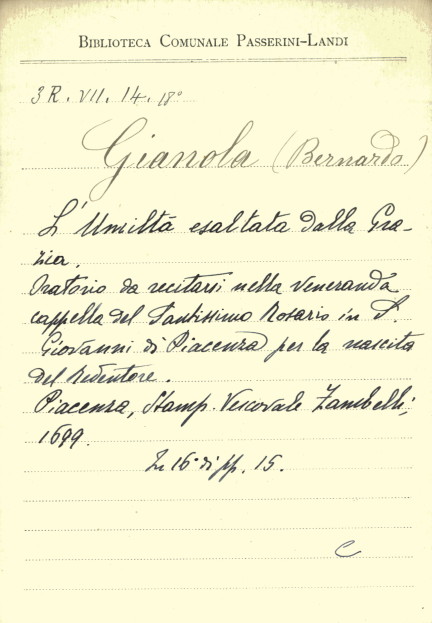 BIBLIOTECA COMUNALE PASSERINI-LANDI
3R. VII. 14. 18°
Gianola (Bernardo)
L'Umiltà esaltata dalla Gra-
zia.
Oratorio da recitarsi nella veneranda
cappella del Santissimo Rosario in S.
Giovanni di Piacenza per la nascita
del Redentore.
Piacenza, Stamp. Vescovale Zambelli,
1699.
In 16° di pp. 15.
C